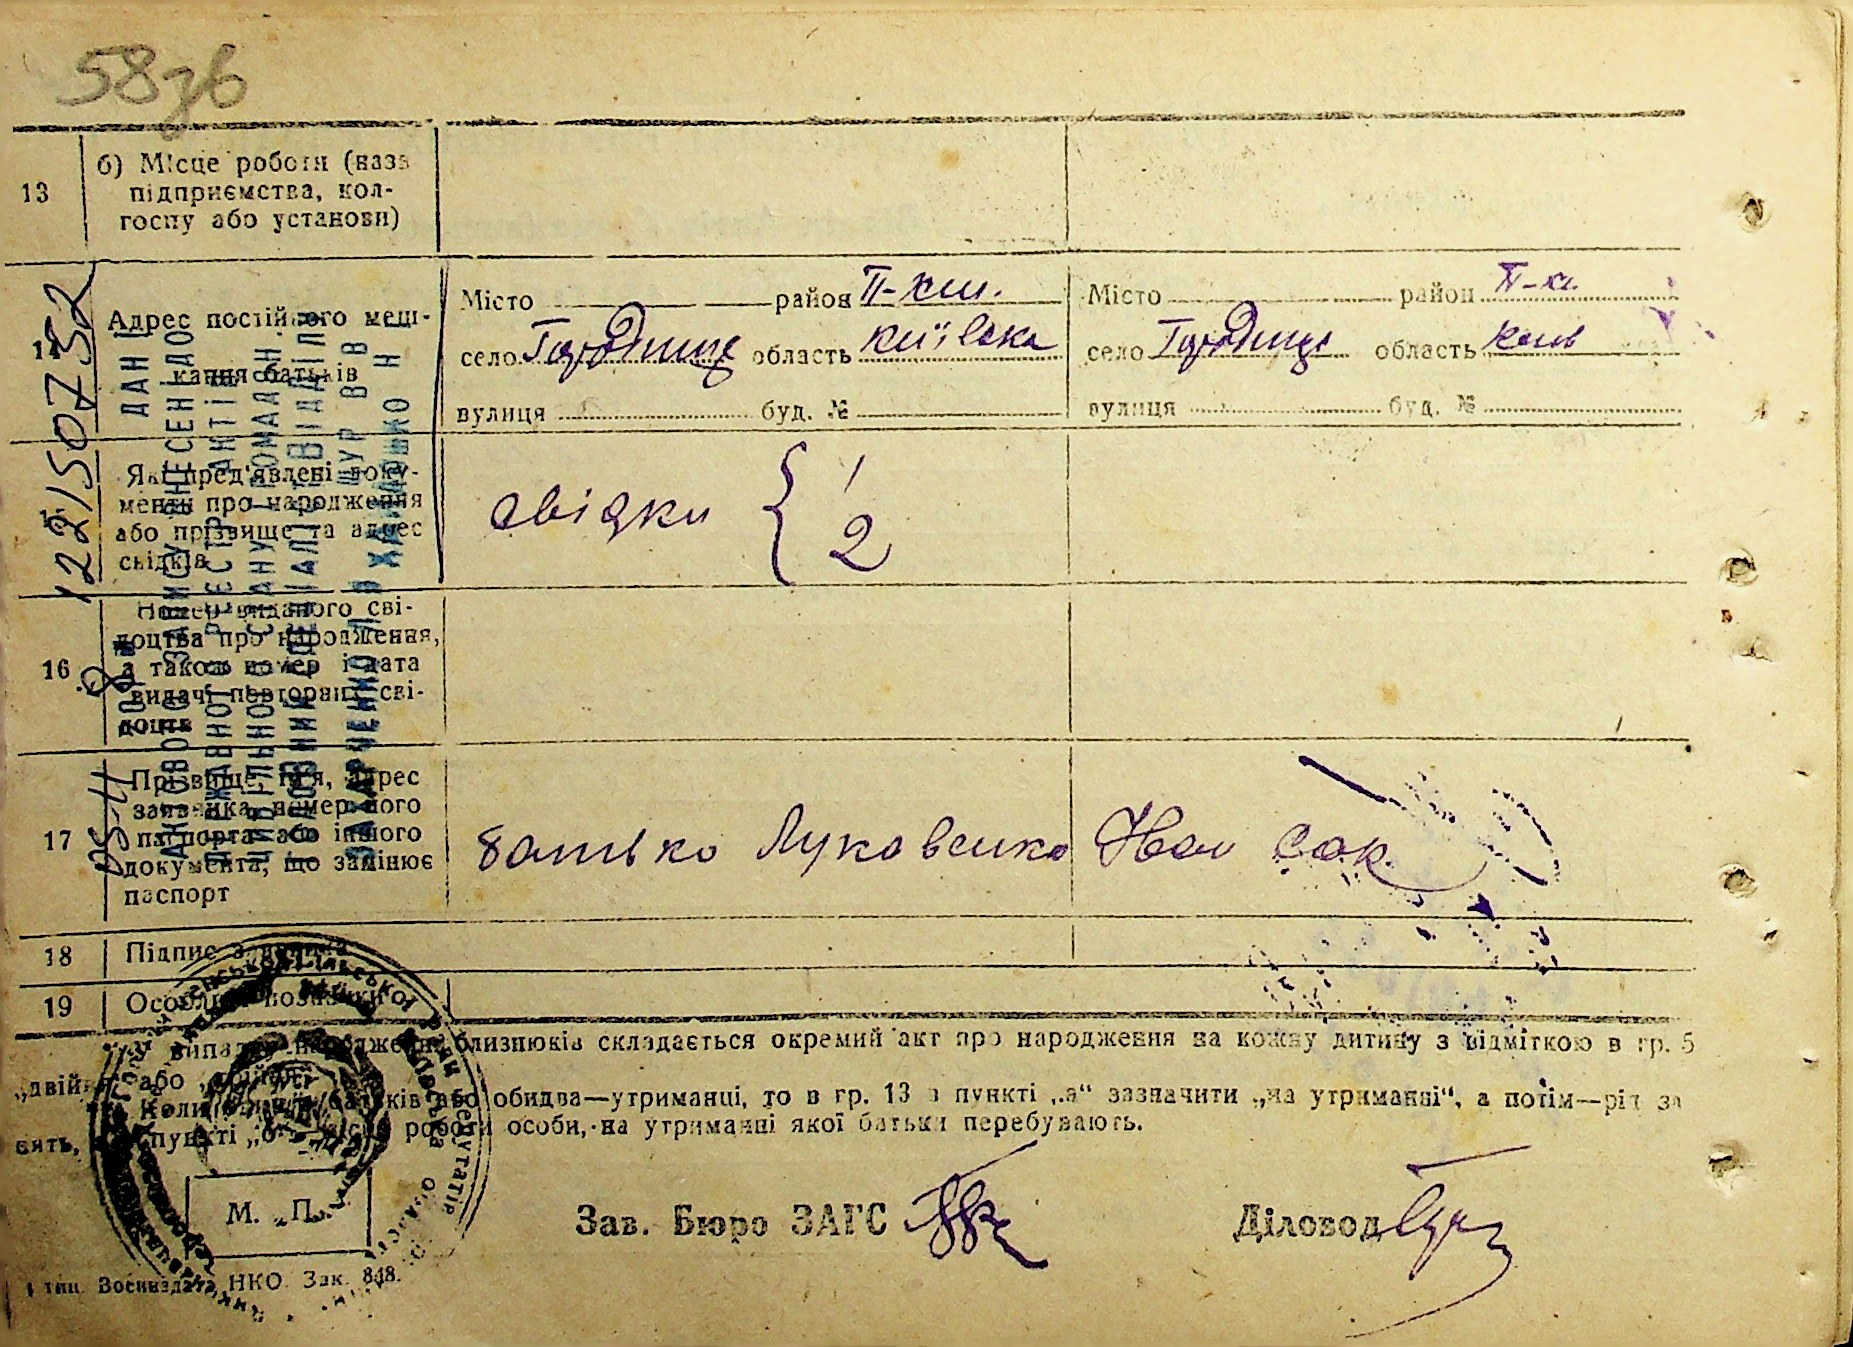 58зв
13
б) Місце роботи (назв
підприємства, кол-
госпу або установи)
Адрес постійного меш-
кання батьків
Місто район П-хм.
село Городище область київська
вулиця буд. №
Місто район П-хм.
село Городище область київ
вулиця буд. №
Які пред'явлені доку-
менти про народження
або прізвище та адрес
свідків
свідки { 1
2
16
Номер виданого сві-
доцтва про народження,
а також номер і дата
видачі повторних сві-
доцтв
17
Прізвище, ім'я, адрес
заявника, номер його
паспорта або іншого
документа, що замінює
паспорт
батько Луковенко Ион Сок.
18
Підпис заявника
19
Особливі позначки
У випадку народження близнюків складається окремий акт про народження на кожну дитину з відміткою в гр. 5
„двійня“ або „трійня“.
Коли один з батьків або обидва—утриманці, то в гр. 13 в пункті „а“ зазначити „на утриманні“, а потім—рід за
нять, в пункті „б“ місце роботи особи, на утриманні якої батьки перебувають.
М. П.
Зав. Бюро ЗАГС
Діловод
тип. Воениздата НКО. Зак. 848.
1221507352
ДАНІ
АНОВОГО ЗАПИСУ ВНЕСЕНІ ДО
ДЕРЖАВНОГО РЕЄСТР АКТІВ
ЦИВІЛЬНОГО СТАНУ ГРОМАДЯН
ГОЛОВНИЙ СПЕЦІАЛІСТ ВІДДІЛУ
ЗАХАРЧЕНКО Л